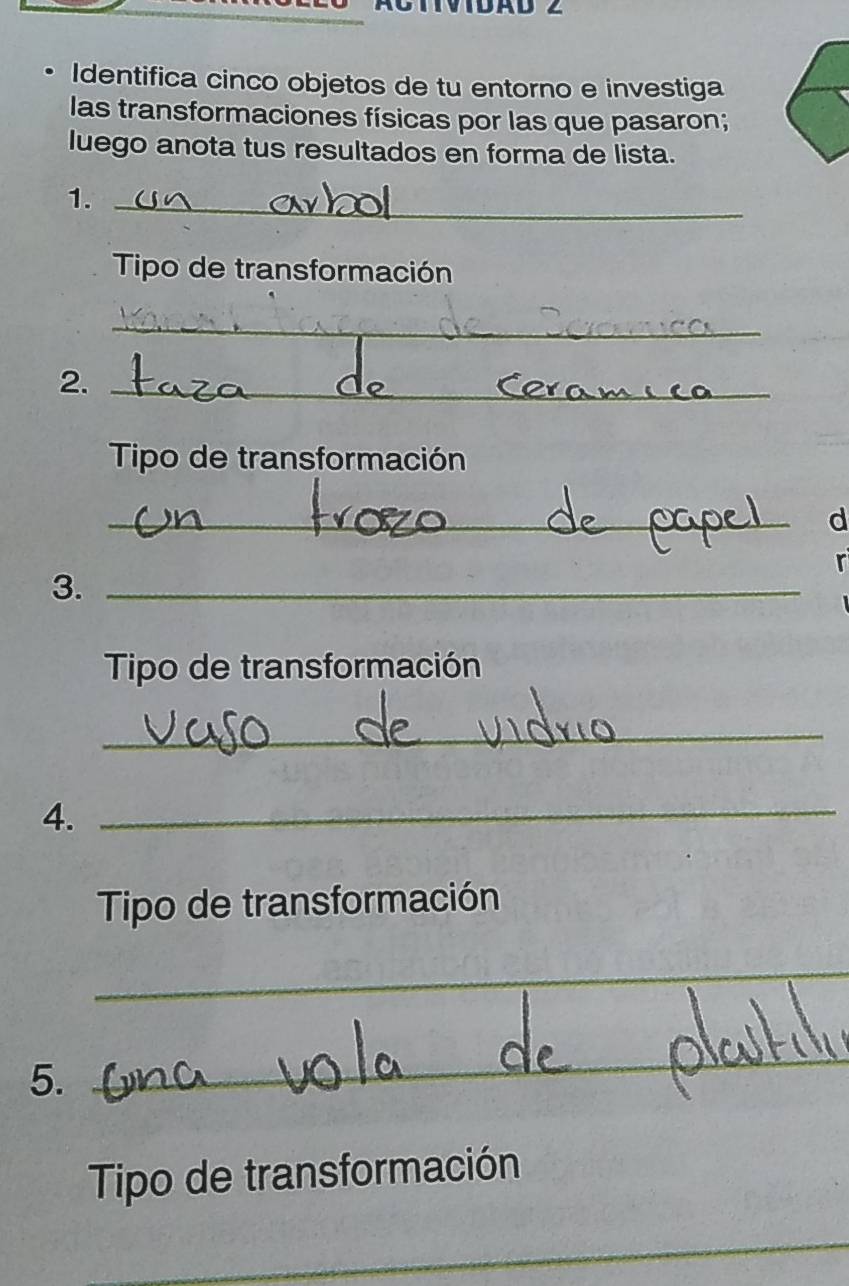 ACTIVIDAD 2
• Identifica cinco objetos de tu entorno e investiga
las transformaciones físicas por las que pasaron;
luego anota tus resultados en forma de lista.
1. un arbol
Tipo de transformación
taza de
2. taza de ceramica
Tipo de transformación
un trozo de papel
3.
Tipo de transformación
vaso de vidrio
4.
Tipo de transformación
5. una vola de
Tipo de transformación